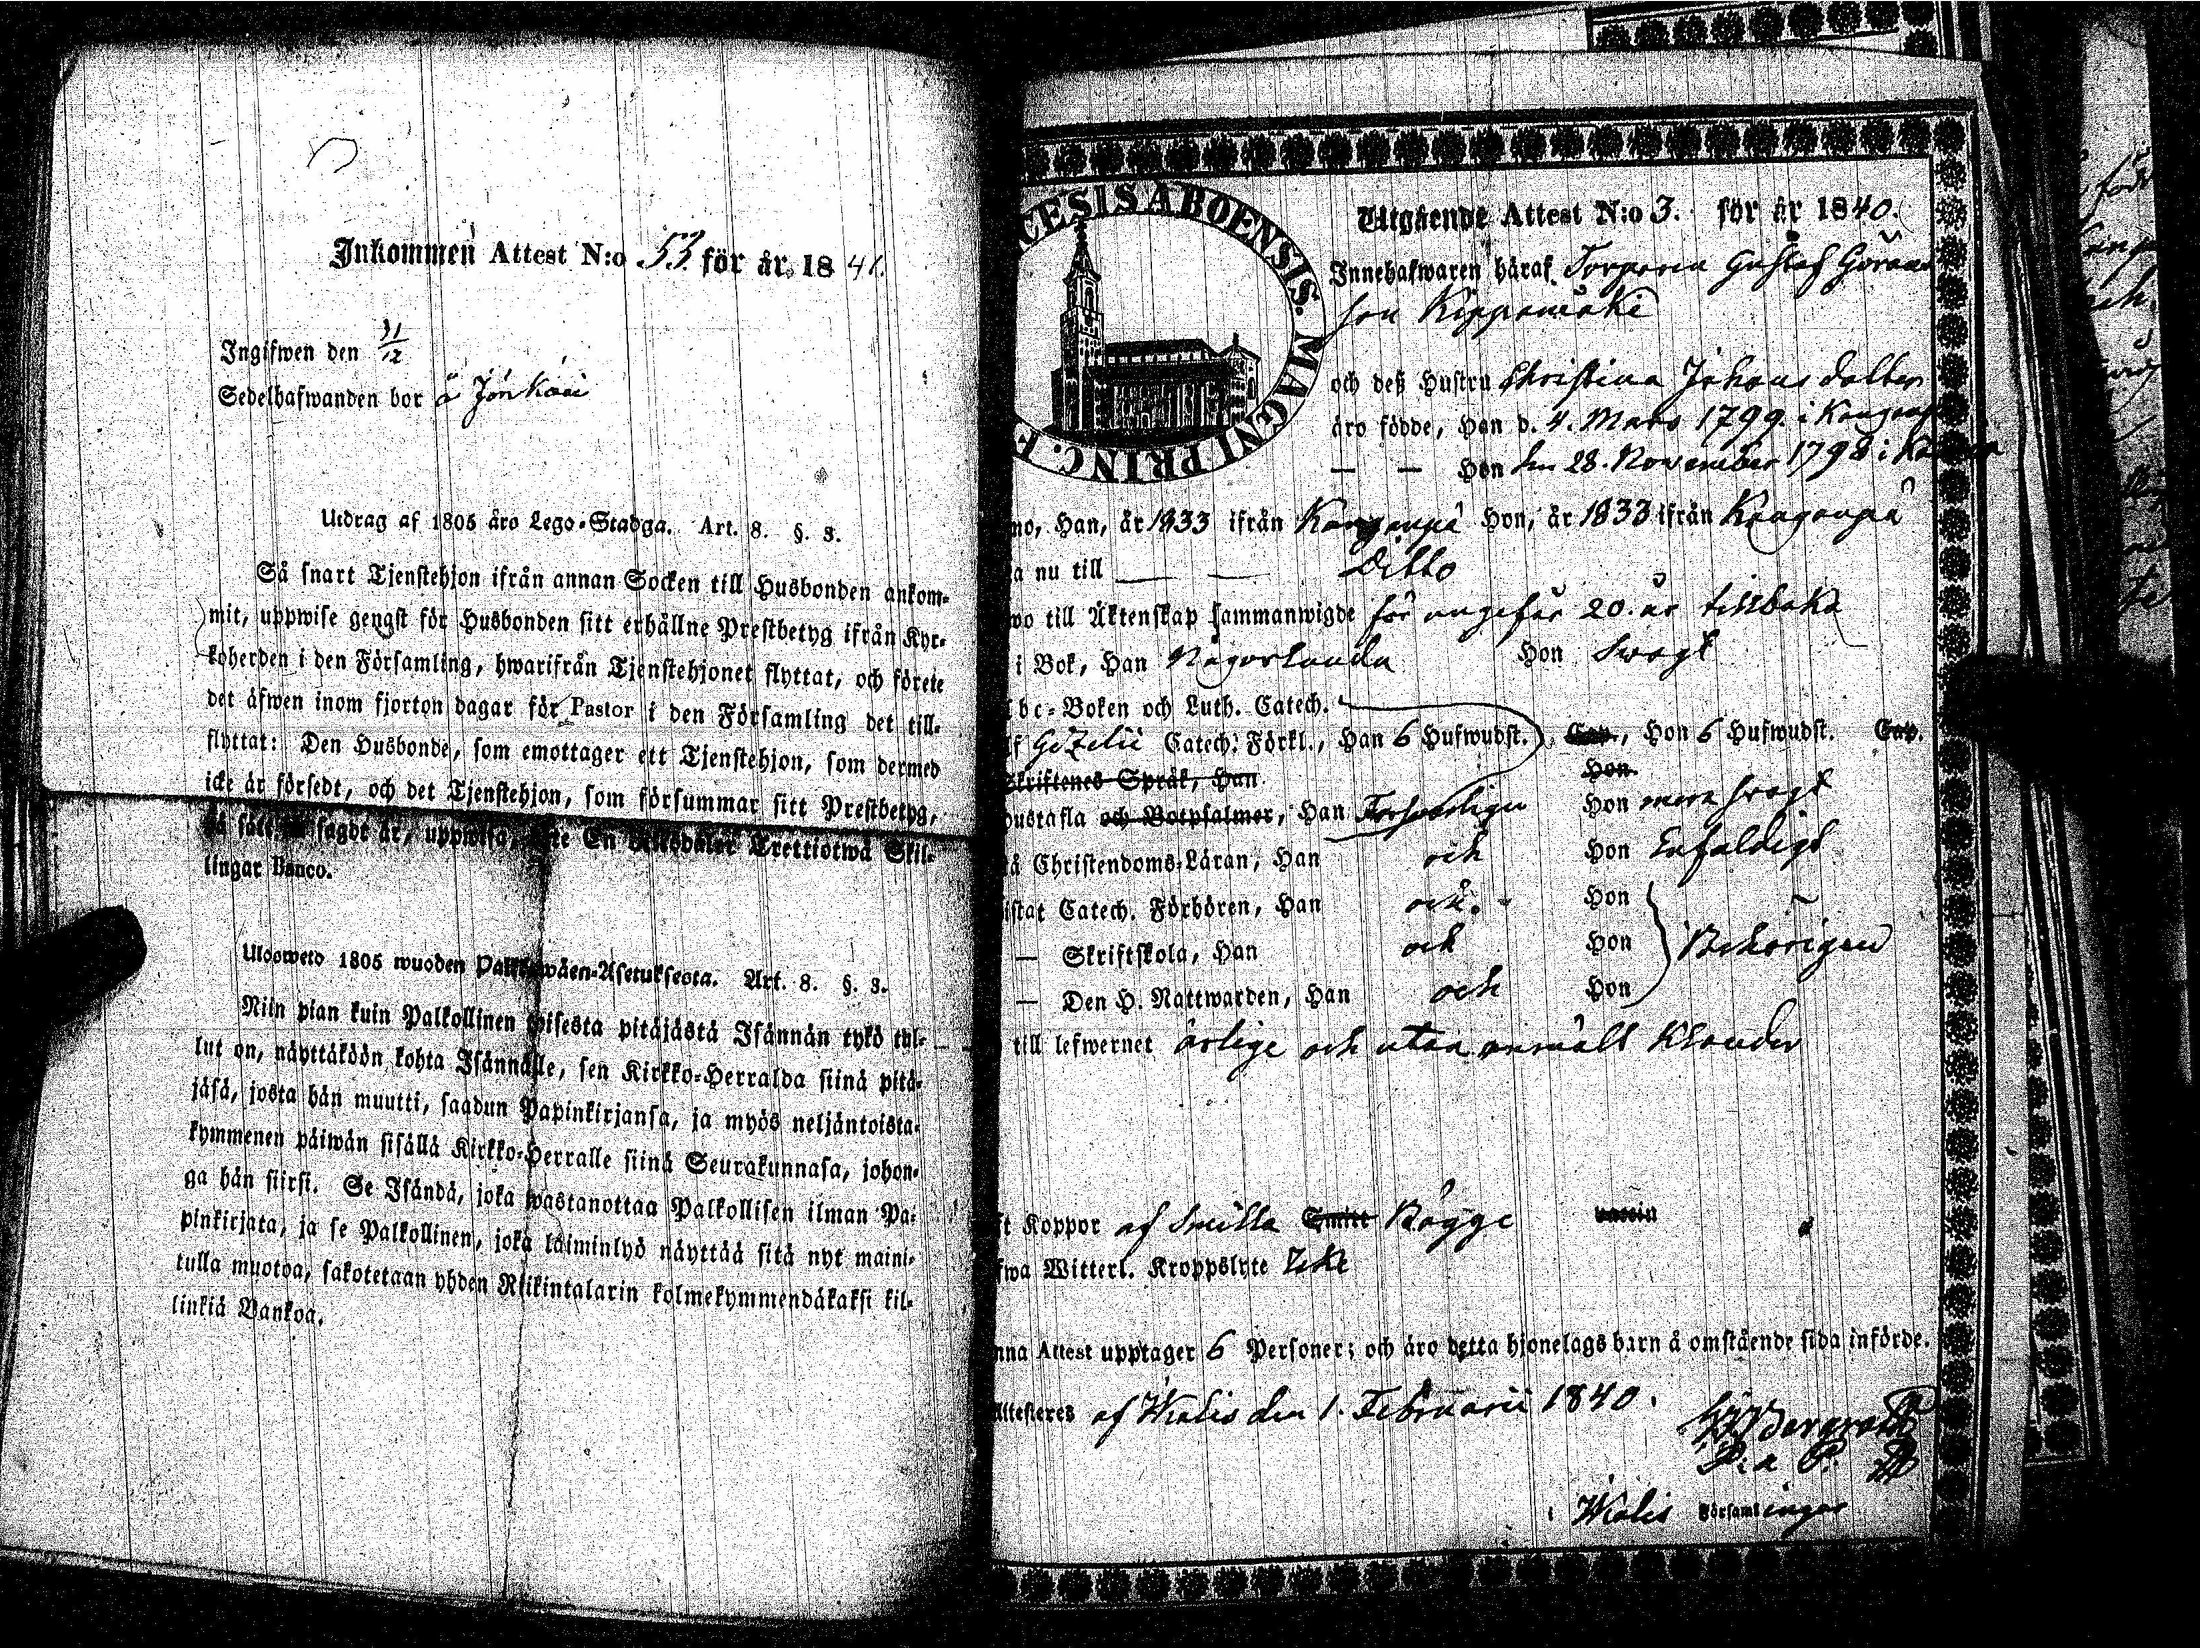 Inkommen Attest N:o 53 för år 1841.
Ingifwen den 31/12
Sedelhafwanden bor å
Utdrag af 1805 års Lego-Stadga. Art. 8. §. 3.
Så snart Tjenstehjon ifrån annan Socken till Husbonden ankom-
mit, uppwise gengst för Husbonden sitt erhållne Prestbetyg ifrån Kyr-
koherden i den Församling, hwarifrån Tjenstehjonet flyttat, och förete
det äfwen inom fjorton dagar för Pastor i den Församling det till-
flyttat: Den Husbonde, som emottager ett Tjenstehjon, som dermed
icke är försedt, och det Tjenstehjon, som försummar sitt Prestbetyg,
så sagdt är, uppwisa, En Trettiotwå Skil-
lingar Banco.
Ulosweto 1805 wuoden Palkkawäen-Asetuksesta. Art. 8. §. 3.
Niin pian kuin Palkollinen toisesta pitäjästä Isännän tykö tul-
lut on, näyttäköön kohta Isännälle, sen Kirkko-Herralda siinä pitä-
jäsä, josta hän muutti, saadun Papinkirjansa, ja myös neljäntoista-
kymmenen päiwän sisällä Kirkko-Herralle siinä Seurakunnasa, johon-
ga hän siirsi. Se Isändä, joka wastanottaa Palkollisen ilman Pa-
pinkirjata, ja se Palkollinen, joka laiminlyö näyttää sitä nyt maini-
tulla muotoa, sakotetaan yhden Riikintalarin kolmekymmendäkaksi kil-
linkiä Bankoa.
CESIS ABOENSIS. MAGNI PRINC. F
Utgående Attest N:o 3. för år 1840.
Innehafwaren häraf Torparen Gustaf Görans
son Kippomäki
och deß Hustru Christina Johans dotter
äro födde, Han d. 4. Mars 1799. i
— — Hon den 28. November 1798 i
mo, Han, år 1833 ifrån Kangonpä Hon, år 1833 ifrån Kangonpä
a nu till — — Ditto
wo till Äktenskap sammanwigde för ungefär 20. år tillbaka
i Bok, Han Någorlunda Hon Swagt
Abc-Boken och Luth. Catech.
f Gezelii Catech. Förkl., Han 6 Hufwudst. Cap., Hon 6 Hufwudst. Cap.
Skriftenes Språk, Han Hon
hustafla och Botpsalmer, Han Försvarligen Hon mera swagt
å Christendoms-Läran, Han och Hon Enfaldigt
istat Catech. Förhören, Han och Hon
— Skriftskola, Han och Hon Behörigen
— Den H. Nattwarden, Han och Hon
till lefwernet ärlige och utan anmält klander
ft Koppor af Smitta Smitt Bägge waccin
fwa Witterl. Kroppslyte Icke
nna Attest upptager 6 Personer; och äro detta hjonelags barn å omstående sida införde.
Attesteres af Wialis den 1. Februarii 1840.
P. a. P.
i Wialis Församlingar